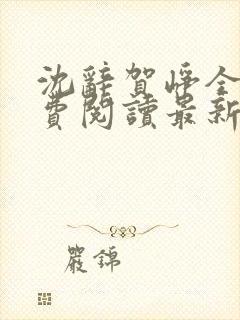 沈辭賀崢全
費閱讀最新
嚴錦